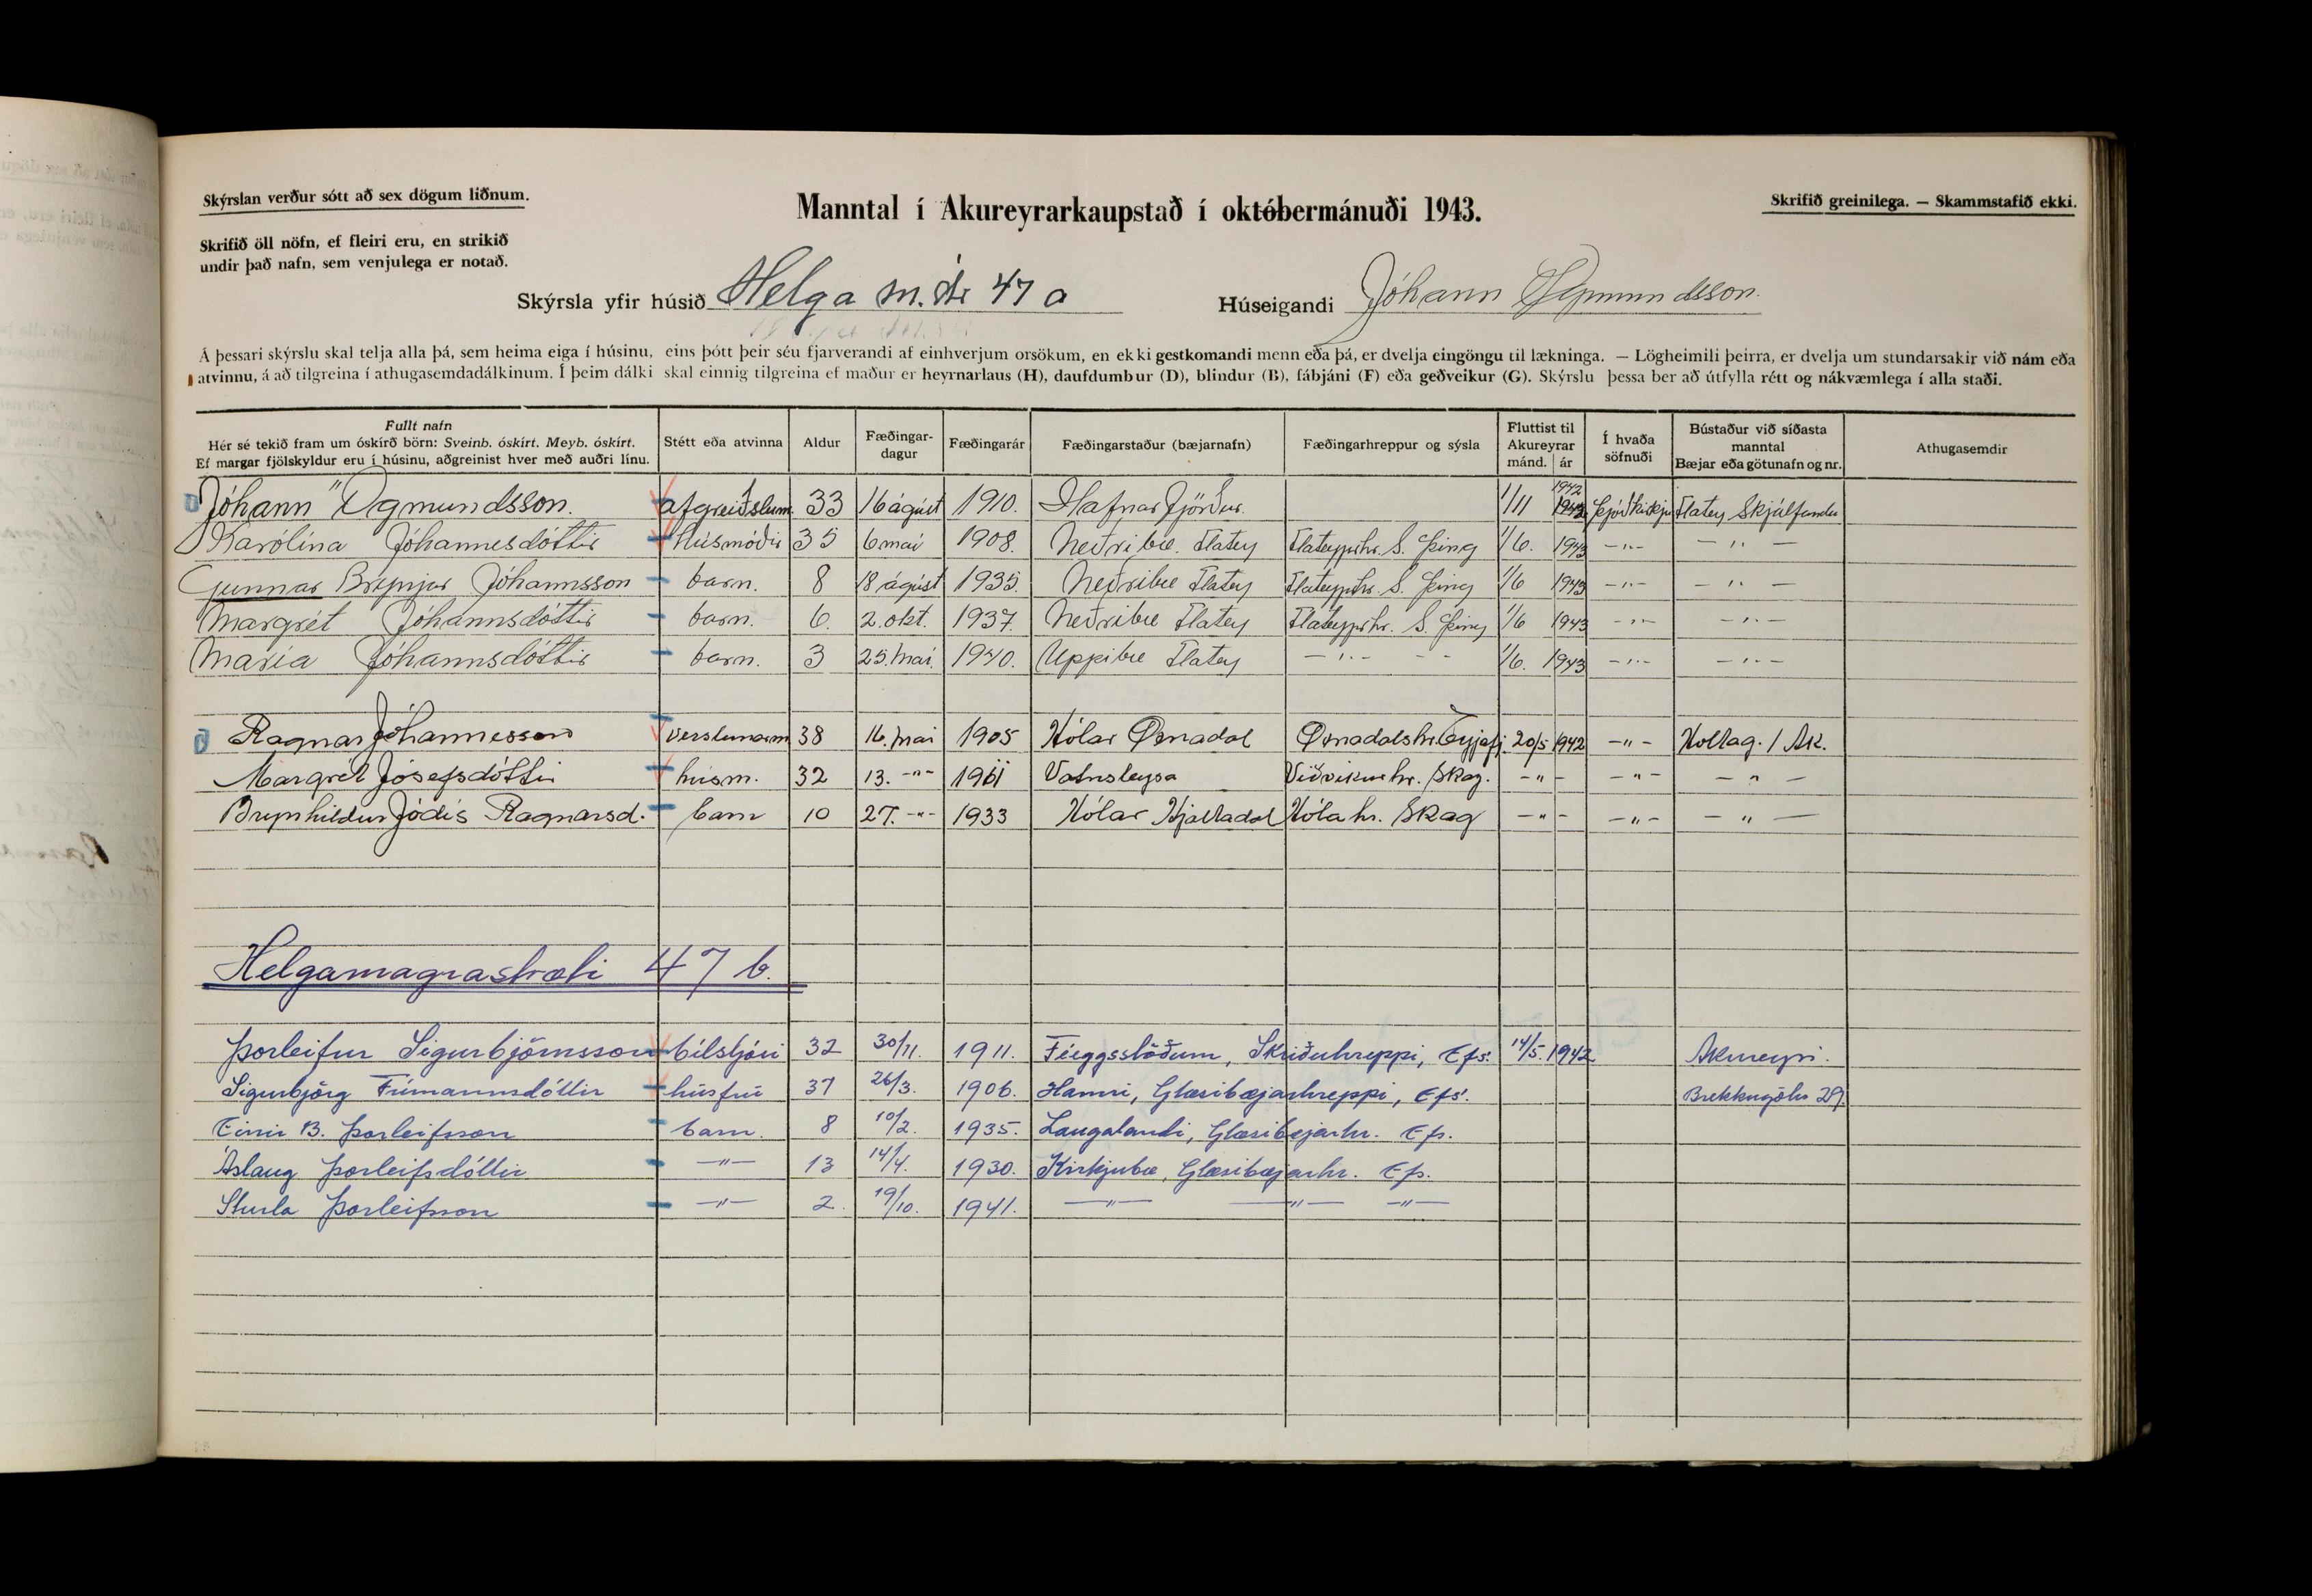 Skýrslan verður sótt að sex dögum liðnum.
Manntal í Akureyrarkaupstað í októbermánuði 1943.
Skrifið greinilega. — Skammstafið ekki.
Skrifið öll nöfn, ef fleiri eru, en strikið
undir það nafn, sem venjulega er notað.
Skýrsla yfir húsið Helga m.str 47 a Húseigandi Jóhann Ögmundsson.
Á þessari skýrslu skal telja alla þá, sem heima eiga í húsinu, eins þótt þeir séu fjarverandi af einhverjum orsökum, en ekki gestkomandi menn eða þá, er dvelja eingöngu til lækninga. — Lögheimili þeirra, er dvelja um stundarsakir við nám eða
atvinnu, á að tilgreina í athugasemdadálkinum. Í þeim dálki skal einnig tilgreina ef maður er heyrnarlaus (H), daufdumbur (D), blindur (B), fábjáni (F) eða geðveikur (G). Skýrslu þessa ber að útfylla rétt og nákvæmlega í alla staði.
Fullt nafn
Hér sé tekið fram um óskírð börn: Sveinb. óskírt. Meyb. óskírt.
Ef margar fjölskyldur eru í húsinu, aðgreinist hver með auðri línu.
Stétt eða atvinna
Aldur
Fæðingar-
dagur
Fæðingarár
Fæðingarstaður (bæjarnafn)
Fæðingarhreppur og sýsla
Fluttist til
Akureyrar
mánd. | ár
Í hvaða
söfnuði
Bústaður við síðasta
manntal
Bæjar eða götunafn og nr.
Athugasemdir
Jóhann Ögmundsson. afgreiðslum. 33 16 ágúst 1910. Hafnarfjörður. 1/11 1942 Þjóðkirkju Flatey Skjálfanda
Karólína Jóhannesdóttir húsmóðir 35 6 maí 1908. Neðribæ. Flatey Flateyjarhr. S. Þing 1/6. 1943 -"- -"-
Gunnar Brynjar Jóhannsson barn. 8 18 ágúst 1935. Neðribæ Flatey Flateyjarhr. S. Þing 1/6 1943 -"- -"-
Margrét Jóhannsdóttir barn. 6. 2. okt. 1937. Neðribæ Flatey Flateyjarhr. S. Þing 1/6 1943 -"- -"-
María Jóhannsdóttir barn. 3 25. maí. 1940. Uppibæ Flatey -"- - - 1/6. 1943 -"- -"-
Ragnar Jóhannesson verslunarm 38 16. maí 1905 Hólar Öxnadal Öxnadalshr. Eyjafj. 20/5 1942 -"- Holtag. 1 Ak.
Margrét Jósefsdóttir húsm. 32 13. -"- 1911 Vatnsleysa Viðvíkurhr. Skag. -"- -"- -"-
Brynhildur Jódís Ragnarsd. barn 10 27. -"- 1933 Hólar Hjaltadal Hólahr. Skag -"- -"- -"-
Helgamagrastræti 47 b.
Þorleifur Sigurbjörnsson bílstjóri 32 30/11. 1911. Féeggsstöðum, Skriðuhreppi, Efs. 14/5. 1942 Akureyri.
Sigurbjörg Finnannsdóttir húsfrú 37 26/3. 1906. Hamri, Glæsibæjarhreppi, Efs. Brekkugötu 29.
Einir B. Þorleifsson barn. 8 10/2. 1935. Laugalandi, Glæsibæjarhr. Efs.
Áslaug Þorleifsdóttir -"- 13 14/4. 1930. Kirkjubæ, Glæsibæjarhr. Efs.
Sturla Þorleifsson -"- 2. 19/10. 1941. -"- -"- -"-